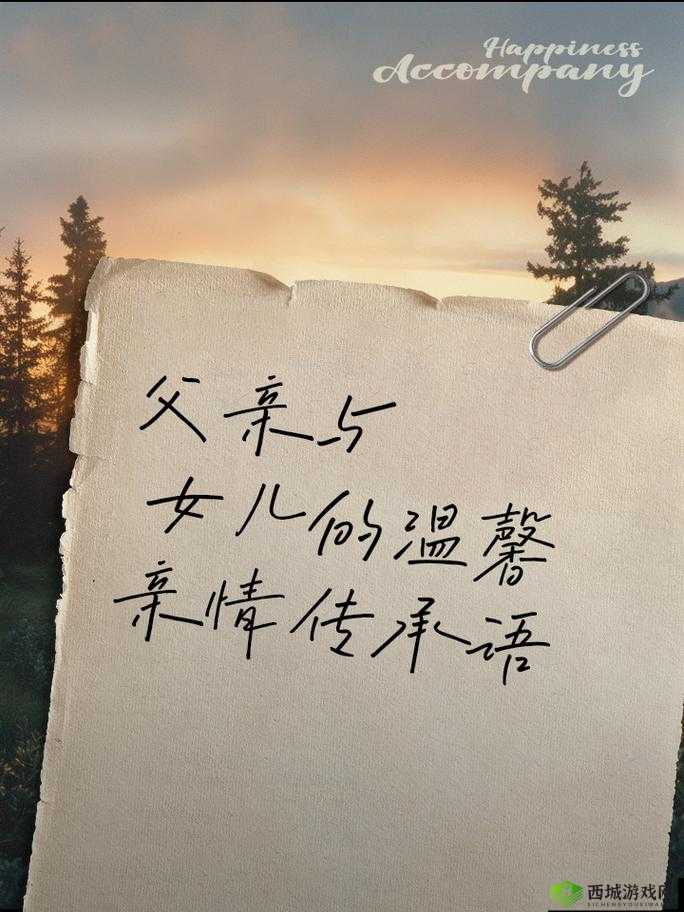 Happiness
Accompany
父亲与
女儿的温馨
亲情传承语
西城游戏网